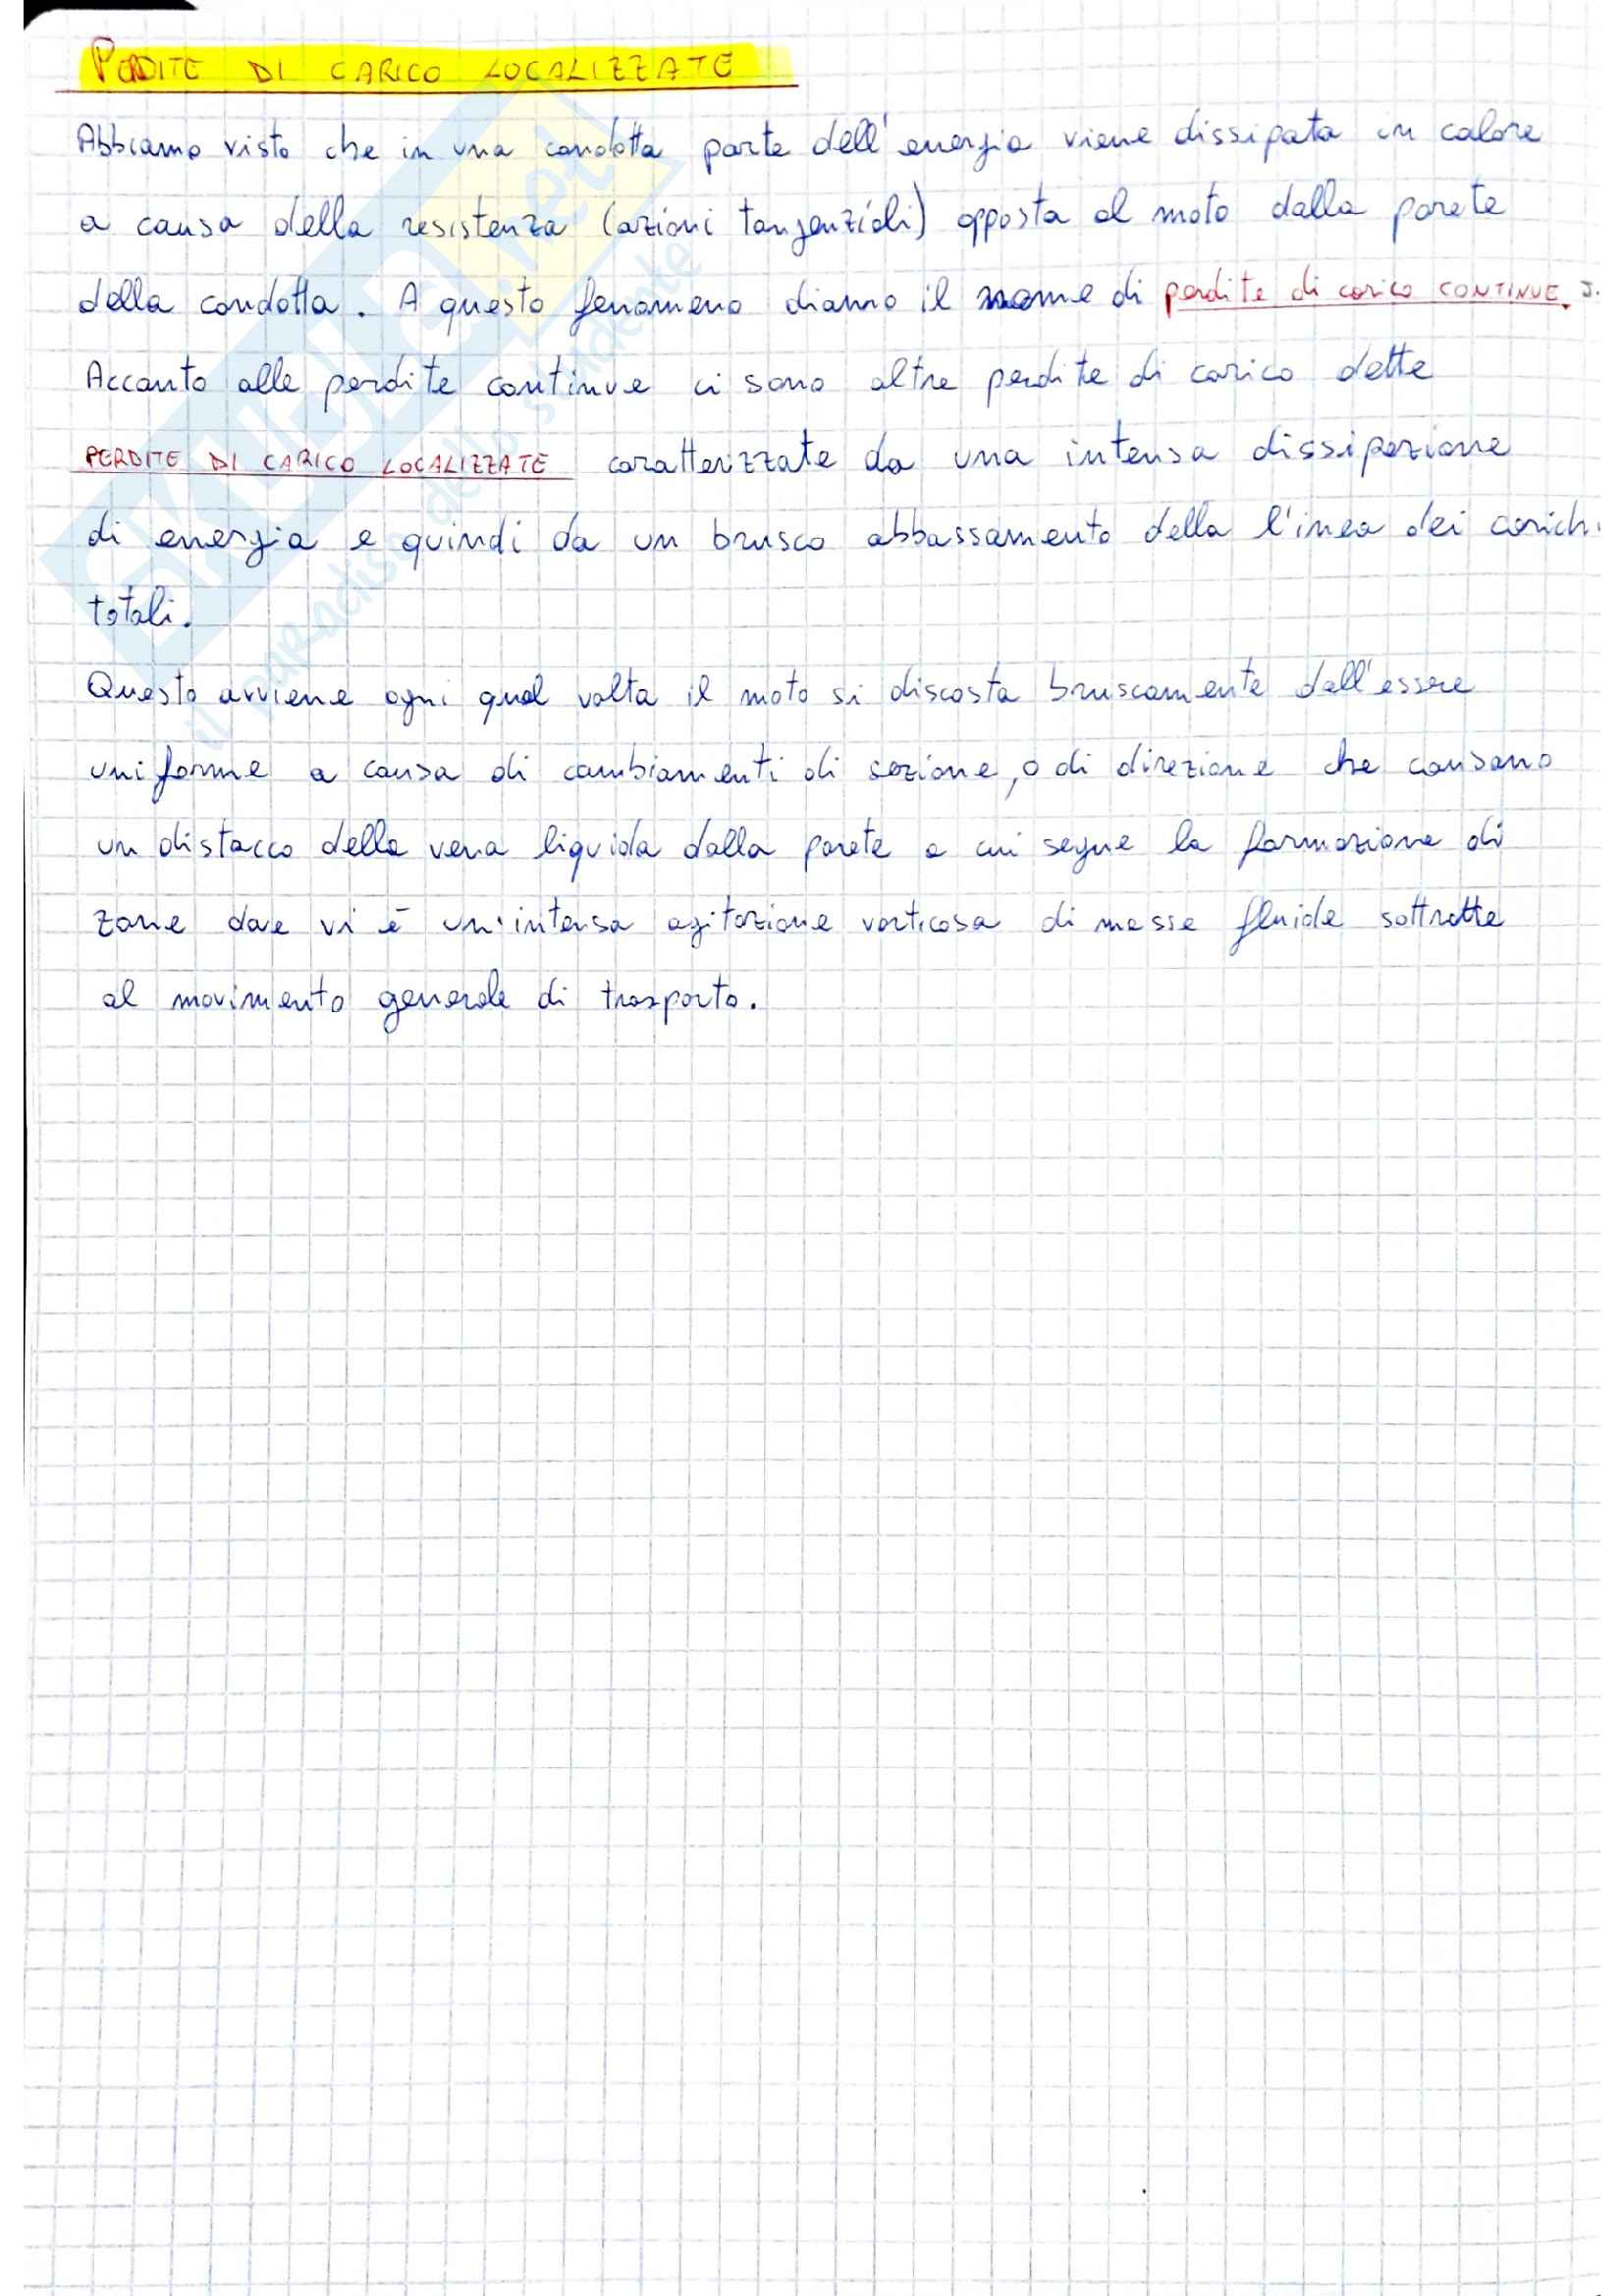 PERDITE DI CARICO LOCALIZZATE
Abbiamo visto che in una condotta parte dell'energia viene dissipata in calore
a causa della resistenza (azioni tangenziali) opposta al moto dalla parete
della condotta. A questo fenomeno diamo il nome di perdite di carico CONTINUE. J.
Accanto alle perdite continue ci sono altre perdite di carico dette
PERDITE DI CARICO LOCALIZZATE caratterizzate da una intensa dissipazione
di energia e quindi da un brusco abbassamento della linea dei carichi
totali.
Questo avviene ogni qual volta il moto si discosta bruscamente dall'essere
uniforme a causa di cambiamenti di sezione, o di direzione che causano
un distacco della vena liquida dalla parete a cui segue la formazione di
zone dove vi è un'intensa agitazione vorticosa di masse fluide sottratte
al movimento generale di trasporto.
SKUOLA.net
il paradiso dello studente